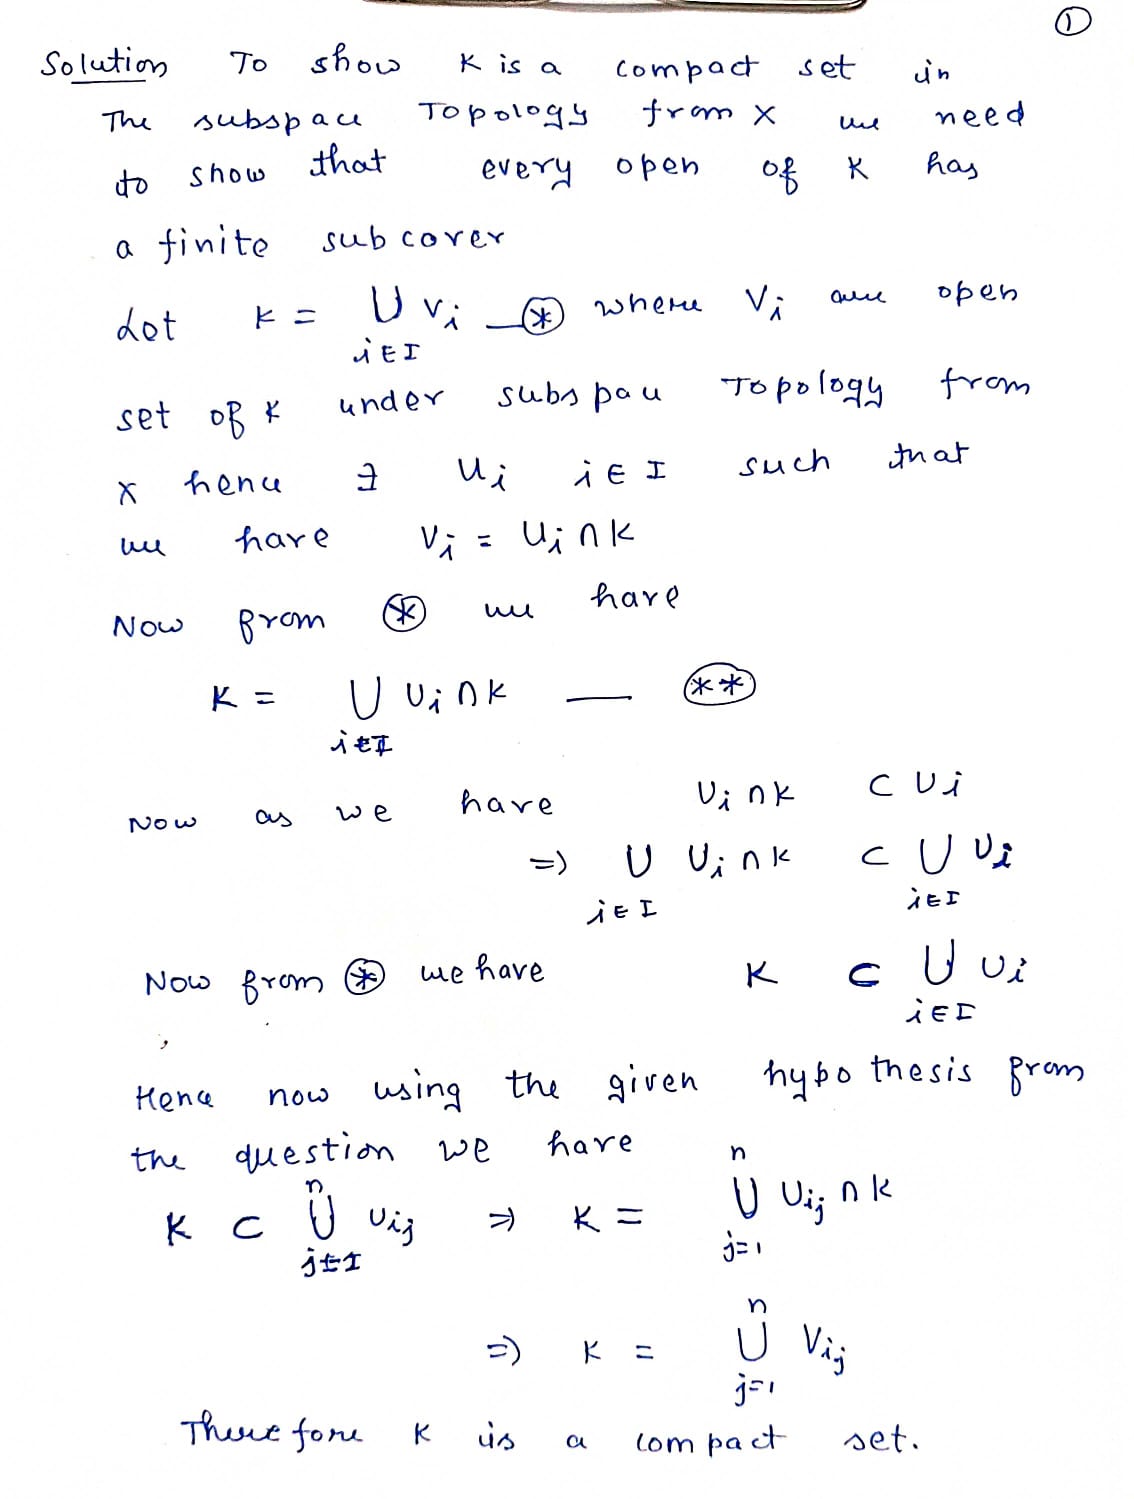 ①
Solution To show K is a compact set in
The subspace Topology from X we need
to show that every open of K has
a finite subcover
Let K = ⋃ Vi —⊛ where Vi are open
i∈I
set of K under subspace Topology from
X hence ∃ Ui i∈I such that
we have Vi = Ui∩K
Now from ⊛ we have
K = ⋃ Ui∩K — (**)
i∈I
Now as we have Ui∩K ⊂ Ui
=) ⋃ Ui∩K ⊂ ⋃ Ui
i∈I i∈I
Now from ⊛ we have K ⊂ ⋃ Ui
i∈I
Hence now using the given hypothesis from
the question we have
K ⊂ n⋃j=1 Uij ⇒ K = n⋃j=1 Uij∩K
=) K = n⋃j=1 Vij
Therefore K is a compact set.